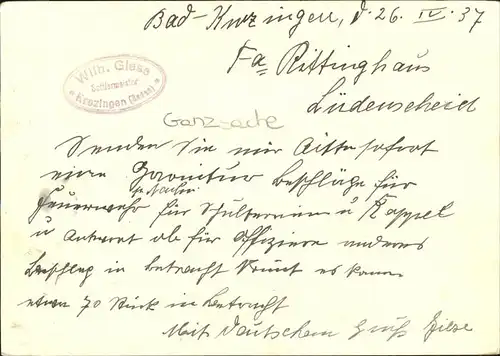 Bad-Krozingen, d. 26. IV. 37
Wilh. Giese
Sattlermeister
Krozingen (Baden)
Fa Rittinghaus
Lüdenscheid
Ganzsache
Senden Sie mir bitte sofort
eine Garnitur Beschläge für
Feuerwehr für Schulternen u Koppel
u Antwort ob für Offiziere anderes
Beschläg in betracht kommt es kann
etwa 70 Stück in betracht
Mit deutschem Gruß Giese